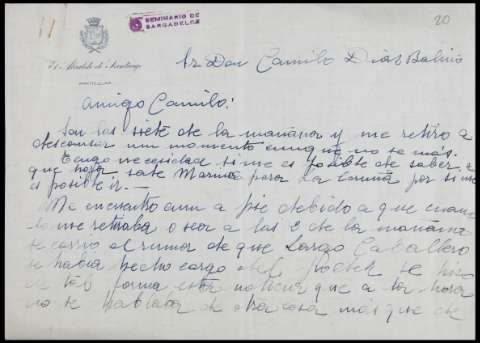 20
SEMINARIO DE
SARGADELOS
El Alcalde de Santiago
PARTICULAR
Sr Don Camilo Diaz Baliño
Amigo Camilo:
Son las siete de la mañana y me retiro a
descansar un momento aunque no se más.
Tengo necesidad si me es posible de saber a
que hora sale Marino para La Coruña por si me
es posible ir.
Me encuentro aun a pie debido a que cuando
me retiraba o sea a las 6 de la mañana
se corrio el rumor de que Largo Caballero
se habia hecho cargo del Poder se hizo
de tal forma esta noticia que a la hora
no se hablaba de otra cosa más que de